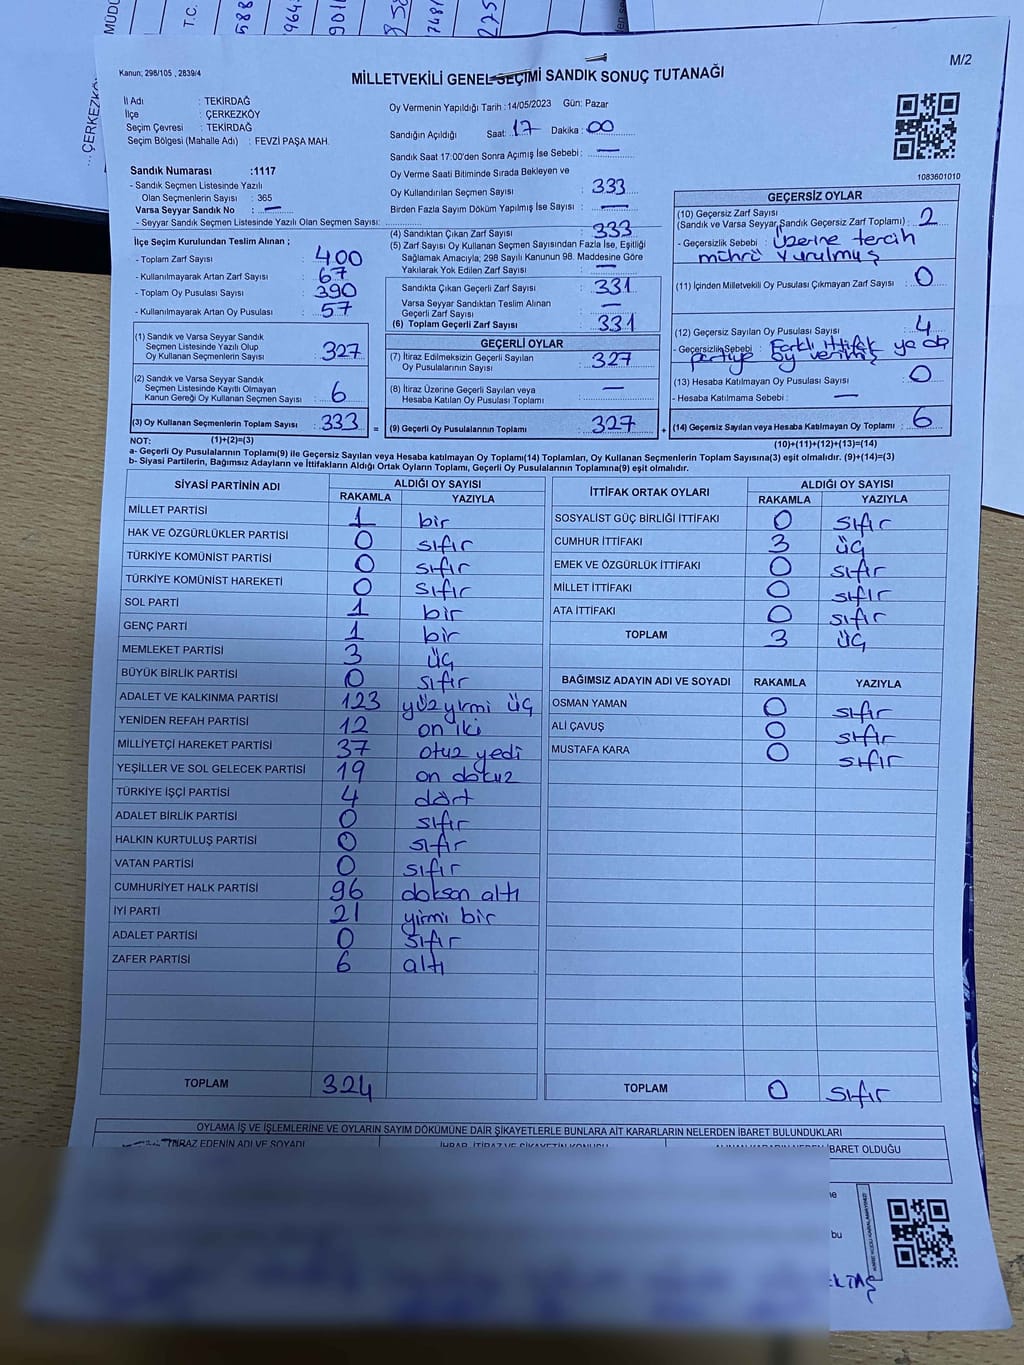 MÜDÜ
T.C.
...ÇERKEZKÖY
Kanun; 298/105 , 2839/4
M/2
MİLLETVEKİLİ GENEL SEÇİMİ SANDIK SONUÇ TUTANAĞI
İl Adı : TEKİRDAĞ
İlçe : ÇERKEZKÖY
Seçim Çevresi : TEKİRDAĞ
Seçim Bölgesi (Mahalle Adı) : FEVZİ PAŞA MAH.
Sandık Numarası :1117
- Sandık Seçmen Listesinde Yazılı
Olan Seçmenlerin Sayısı : 365
Varsa Seyyar Sandık No : —
- Seyyar Sandık Seçmen Listesinde Yazılı Olan Seçmen Sayısı:
İlçe Seçim Kurulundan Teslim Alınan ;
- Toplam Zarf Sayısı : 400
- Kullanılmayarak Artan Zarf Sayısı : 67
- Toplam Oy Pusulası Sayısı : 390
- Kullanılmayarak Artan Oy Pusulası : 57
(1) Sandık ve Varsa Seyyar Sandık
Seçmen Listesinde Yazılı Olup
Oy Kullanan Seçmenlerin Sayısı : 327
(2) Sandık ve Varsa Seyyar Sandık
Seçmen Listesinde Kayıtlı Olmayan
Kanun Gereği Oy Kullanan Seçmen Sayısı : 6
(3) Oy Kullanan Seçmenlerin Toplam Sayısı : 333 =
Oy Vermenin Yapıldığı Tarih : 14/05/2023 Gün: Pazar
Sandığın Açıldığı Saat: 17 Dakika : 00
Sandık Saat 17:00'den Sonra Açımış İse Sebebi : —
Oy Verme Saati Bitiminde Sırada Bekleyen ve
Oy Kullandırılan Seçmen Sayısı : 333
Birden Fazla Sayım Döküm Yapılmış İse Sayısı : —
(4) Sandıktan Çıkan Zarf Sayısı : 333
(5) Zarf Sayısı Oy Kullanan Seçmen Sayısından Fazla İse, Eşitliği
Sağlamak Amacıyla; 298 Sayılı Kanunun 98. Maddesine Göre
Yakılarak Yok Edilen Zarf Sayısı : —
Sandıkta Çıkan Geçerli Zarf Sayısı : 331
Varsa Seyyar Sandıktan Teslim Alınan
Geçerli Zarf Sayısı : —
(6) Toplam Geçerli Zarf Sayısı : 331
GEÇERLİ OYLAR
(7) İtiraz Edilmeksizin Geçerli Sayılan
Oy Pusulalarının Sayısı : 327
(8) İtiraz Üzerine Geçerli Sayılan veya
Hesaba Katılan Oy Pusulası Toplamı : —
(9) Geçerli Oy Pusulalarının Toplamı : 327 +
1083601010
GEÇERSİZ OYLAR
(10) Geçersiz Zarf Sayısı
(Sandık ve Varsa Seyyar Sandık Geçersiz Zarf Toplamı) : 2
- Geçersizlik Sebebi : Üzerine tercih
mührü vurulmuş
(11) İçinden Milletvekili Oy Pusulası Çıkmayan Zarf Sayısı : 0
(12) Geçersiz Sayılan Oy Pusulası Sayısı : 4
- Geçersizlik Sebebi : Farklı ittifak ya da
partiye oy verilmiş
(13) Hesaba Katılmayan Oy Pusulası Sayısı : 0
- Hesaba Katılmama Sebebi : —
(14) Geçersiz Sayılan veya Hesaba Katılmayan Oy Toplamı : 6
NOT: (1)+(2)=(3)
(10)+(11)+(12)+(13)=(14)
a- Geçerli Oy Pusulalarının Toplamı(9) ile Geçersiz Sayılan veya Hesaba katılmayan Oy Toplamı(14) Toplamları, Oy Kullanan Seçmenlerin Toplam Sayısına(3) eşit olmalıdır. (9)+(14)=(3)
b- Siyasi Partilerin, Bağımsız Adayların ve İttifakların Aldığı Ortak Oyların Toplamı, Geçerli Oy Pusulalarının Toplamına(9) eşit olmalıdır.
SİYASİ PARTİNİN ADI ALDIĞI OY SAYISI
RAKAMLA YAZIYLA
MİLLET PARTİSİ 1 bir
HAK VE ÖZGÜRLÜKLER PARTİSİ 0 sıfır
TÜRKİYE KOMÜNİST PARTİSİ 0 sıfır
TÜRKİYE KOMÜNİST HAREKETİ 0 sıfır
SOL PARTİ 1 bir
GENÇ PARTİ 1 bir
MEMLEKET PARTİSİ 3 üç
BÜYÜK BİRLİK PARTİSİ 0 sıfır
ADALET VE KALKINMA PARTİSİ 123 yüzyirmi üç
YENİDEN REFAH PARTİSİ 12 on iki
MİLLİYETÇİ HAREKET PARTİSİ 37 otuz yedi
YEŞİLLER VE SOL GELECEK PARTİSİ 19 on dokuz
TÜRKİYE İŞÇİ PARTİSİ 4 dört
ADALET BİRLİK PARTİSİ 0 sıfır
HALKIN KURTULUŞ PARTİSİ 0 sıfır
VATAN PARTİSİ 0 sıfır
CUMHURİYET HALK PARTİSİ 96 doksan altı
İYİ PARTİ 21 yirmi bir
ADALET PARTİSİ 0 sıfır
ZAFER PARTİSİ 6 altı
TOPLAM 324
İTTİFAK ORTAK OYLARI ALDIĞI OY SAYISI
RAKAMLA YAZIYLA
SOSYALİST GÜÇ BİRLİĞİ İTTİFAKI 0 sıfır
CUMHUR İTTİFAKI 3 üç
EMEK VE ÖZGÜRLÜK İTTİFAKI 0 sıfır
MİLLET İTTİFAKI 0 sıfır
ATA İTTİFAKI 0 sıfır
TOPLAM 3 üç
BAĞIMSIZ ADAYIN ADI VE SOYADI RAKAMLA YAZIYLA
OSMAN YAMAN 0 sıfır
ALİ ÇAVUŞ 0 sıfır
MUSTAFA KARA 0 sıfır
TOPLAM 0 sıfır
OYLAMA İŞ VE İŞLEMLERİNE VE OYLARIN SAYIM DÖKÜMÜNE DAİR ŞİKAYETLERLE BUNLARA AİT KARARLARIN NELERDEN İBARET BULUNDUKLARI
İTİRAZ EDENİN ADI VE SOYADI
İHBAR, İTİRAZ VE ŞİKAYETİN KONUSU
İBARET OLDUĞU
bu